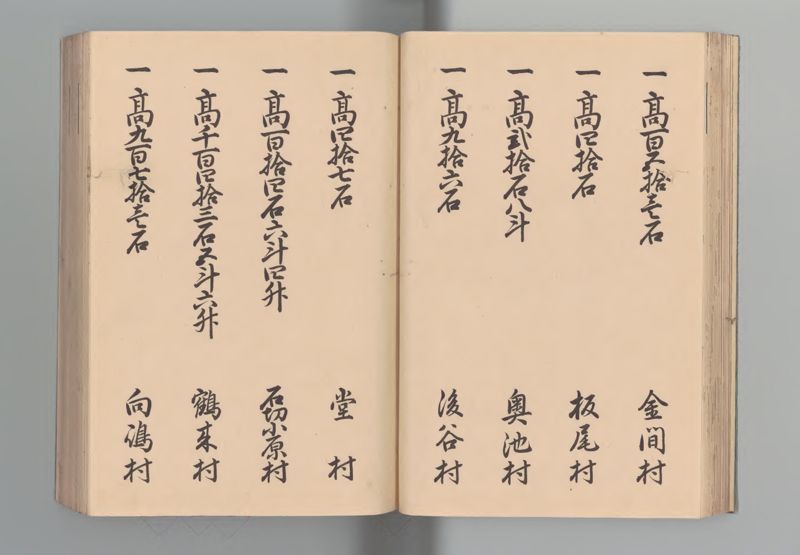 一 髙百五拾壱石 金間村
一 髙四拾石 板尾村
一 髙弐拾石八斗 奥池村
一 髙九拾六石 後谷村
一 髙四拾七石 堂村
一 髙百拾四石六斗四升 石切小原村
一 髙千百四拾三石五斗六升 鶴来村
一 髙九百七拾壱石 向嶋村